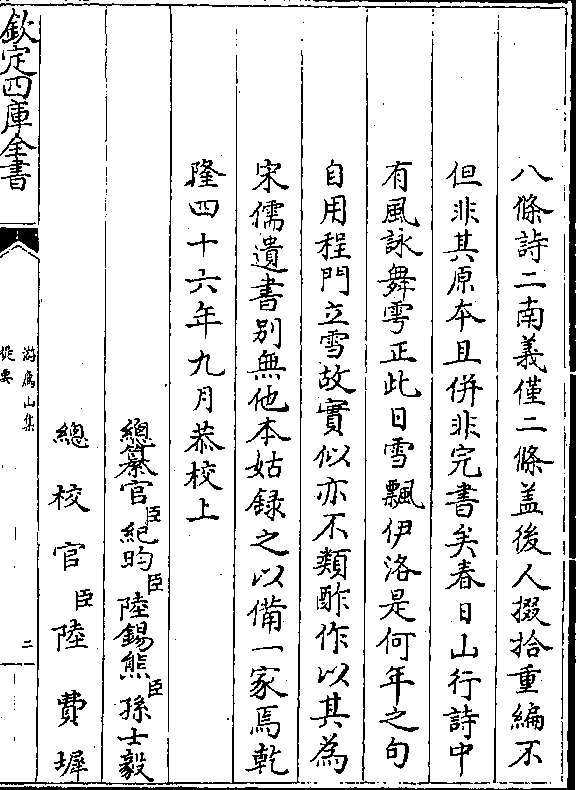 八條詩二南義僅二條盖後人掇拾重編不
但非其原本且併非完書矣春日山行詩中
有風詠舞雩正此日雪飄伊洛是何年之句
自用程門立雪故實似亦不類酢作以其為
宋儒遺書别無他本姑録之以備一家焉乾
隆四十六年九月恭校上
總纂官臣紀昀臣陸錫熊臣孫士毅
總校官臣陸費墀
欽定四庫全書
游廌山集
提要
二